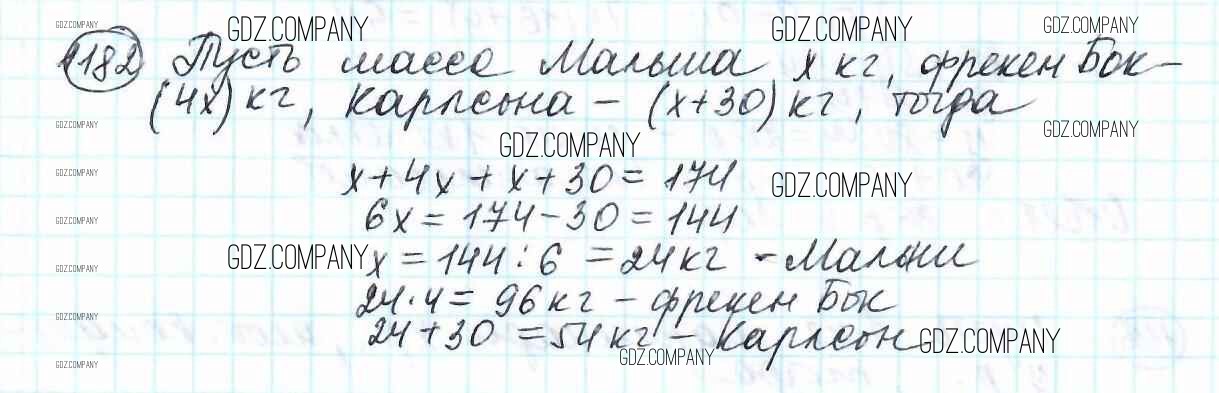 GDZ.COMPANY GDZ.COMPANY GDZ.COMPANY GDZ.COMPANY
182 Пусть масса Малыша x кг, фрекен Бок –
GDZ.COMPANY
(4x) кг, Карлсона – (x+30) кг, тогда
GDZ.COMPANY GDZ.COMPANY GDZ.COMPANY
x + 4x + x + 30 = 174
GDZ.COMPANY GDZ.COMPANY
6x = 174 – 30 = 144
GDZ.COMPANY
x = 144 : 6 = 24 кг – Малыш
GDZ.COMPANY GDZ.COMPANY
24 · 4 = 96 кг – фрекен Бок
GDZ.COMPANY
24 + 30 = 54 кг – Карлсон
GDZ.COMPANY GDZ.COMPANY GDZ.COMPANY